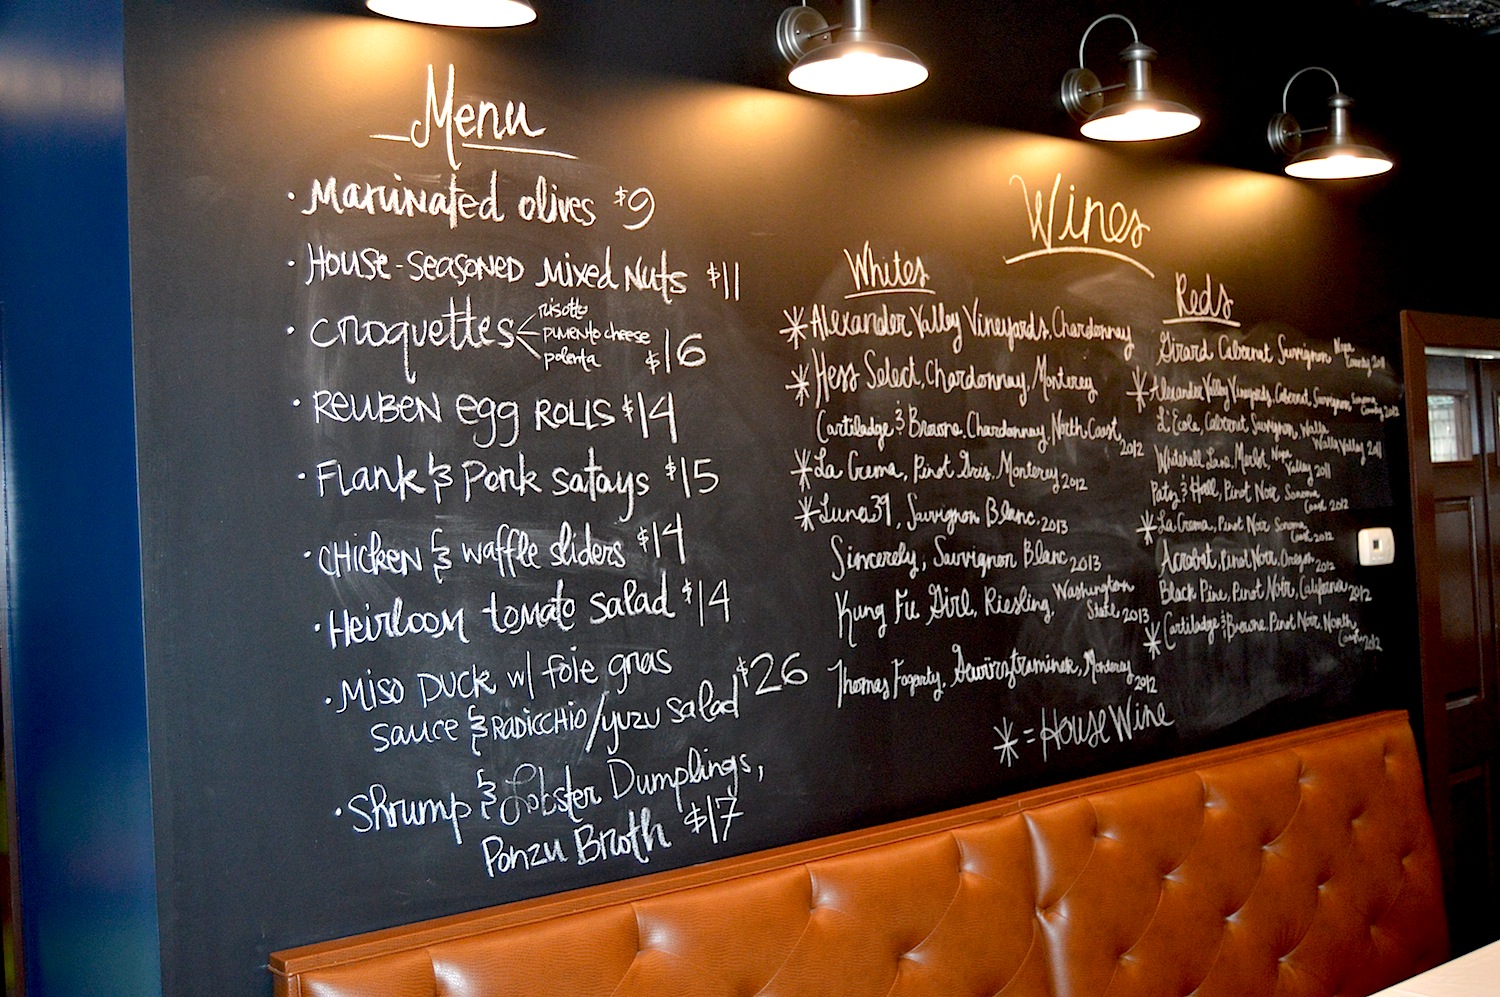 Menu
· Marinated olives $9
· House-seasoned Mixed Nuts $11
· croquettes
risotto
pimento cheese
polenta
$16
· Reuben egg rolls $14
· Flank & Pork satays $15
· chicken & waffle sliders $14
· Heirloom tomato salad $14
· Miso Duck w/ foie gras
sauce & radicchio/yuzu salad $26
· Shrump & Lobster Dumplings,
Ponzu Broth $17
Wines
Whites
* Alexander Valley Vineyards, Chardonnay
* Hess Select, Chardonnay, Monterey
Cartiladge & Browne, Chardonnay, North Coast, 2012
* La Crema, Pinot Gris, Monterey 2012
* Luna 39, Sauvignon Blanc, 2013
Sincerely, Sauvignon Blanc 2013
Kung Fu Girl, Riesling, Washington
State 2013
Thomas Fogarty, Gewürztraminer, Monterey
2012
* = House Wine
Reds
Girard Cabernet Sauvignon Napa
County 2011
* Alexander Valley Vineyards, Cabernet Sauvignon Sonoma
County 2012
L'Ecole, Cabernet Sauvignon, Walla
Walla Valley 2011
Whitehall Lane, Merlot, Napa
Valley 2011
Patz & Hall, Pinot Noir, Sonoma
Coast 2012
* La Crema, Pinot Noir Sonoma
Coast 2012
Acrobat, Pinot Noir, Oregon
2012
Black Pine, Pinot Noir, California 2012
* Cartiladge & Browne, Pinot Noir, North
Coast 2012